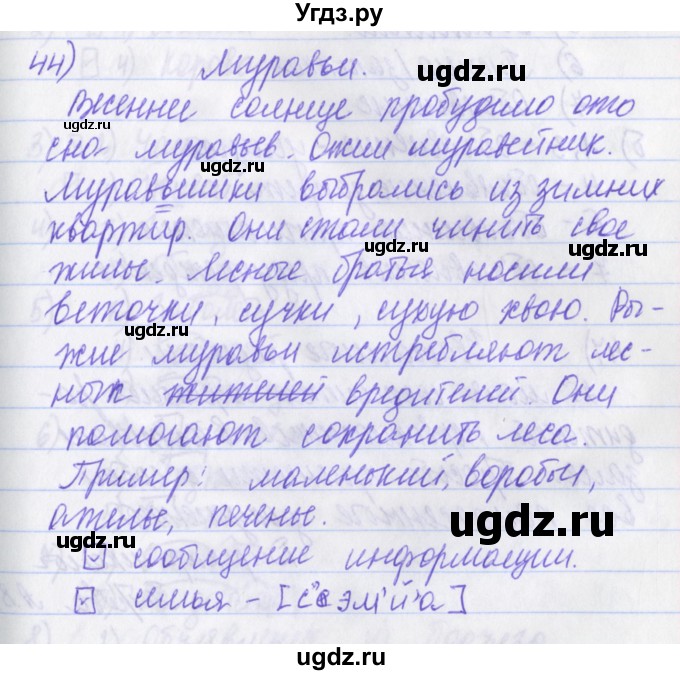 Угдз.ру
44) Муравьи.
ugdz.ru
Весеннее солнце пробудило ото
ugdz.ru
сна муравьев. Ожил муравейник.
ugdz.ru
Муравьишки выбрались из зимних
квартир. Они стали чинить свое
ugdz.ru
ugdz.ru
жилье. Лесные братья носили
веточки, сучки, сухую хвою. Ры-
ugdz.ru
жие муравьи истребляют лес-
ных жителей вредителей. Они
помогают сохранить леса.
Пример: маленький, воробьи,
ателье, печенье.
ugdz.ru
ugdz.ru
сообщение информации.
семья - [с'эм'й'а]
ugdz.ru